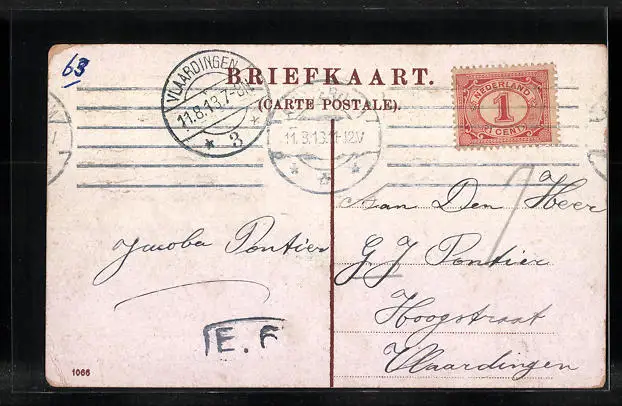 63
BRIEFKAART.
(CARTE POSTALE).
VLAARDINGEN
11.8.13.7-8N
* 3 *
11.8.13.11-12V
NEDERLAND
1
CENT
Aan Den Heer
G J Pontier
Hoogstraat
Vlaardingen
Jacoba Pontier
E. F
1066